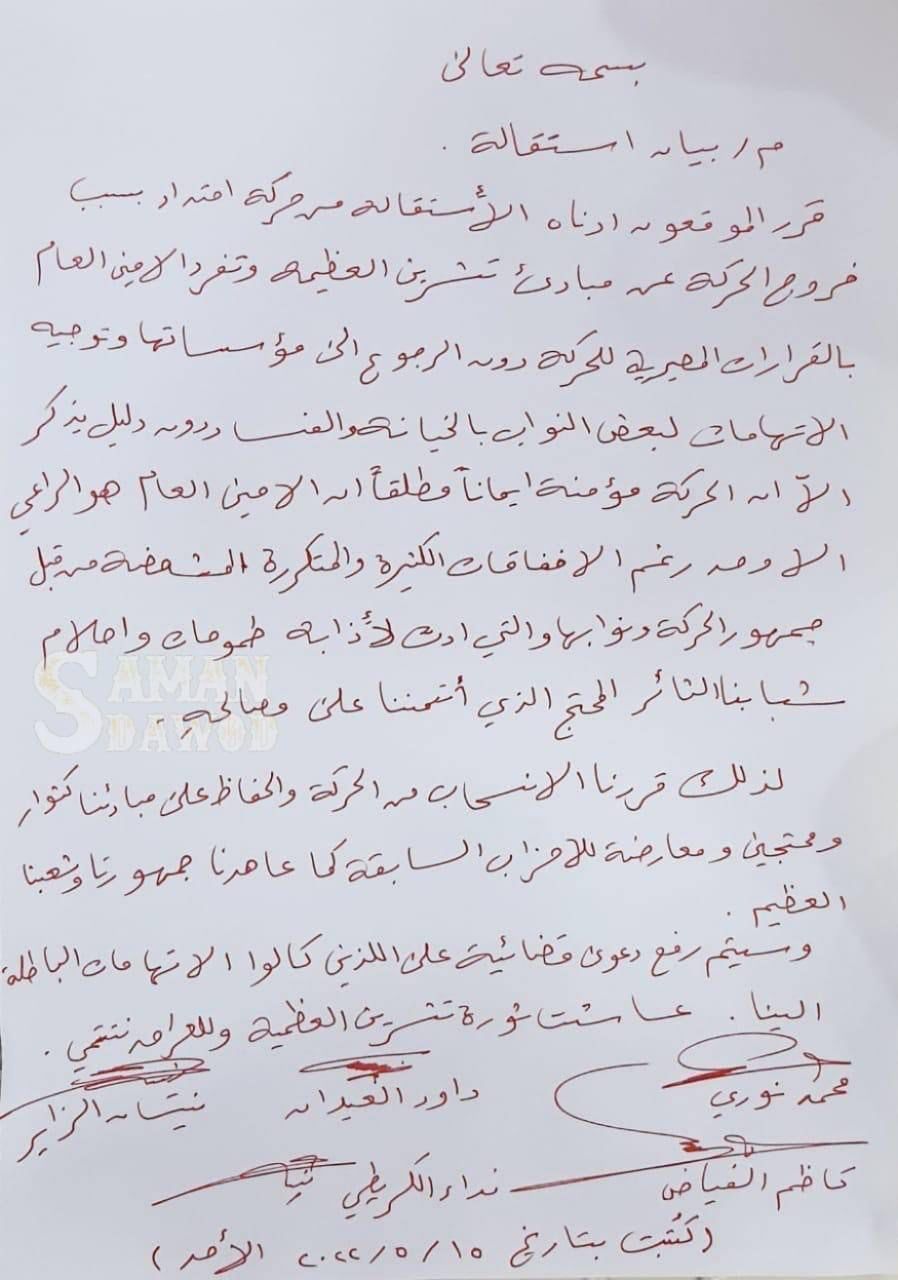 بسمه تعالى
م / بيان استقالة .
قرر الموقعون ادناه الأستقالة من حركة امتداد بسبب
خروج الحركة عن مبادئ تشرين العظيمة وتفرد الامين العام
بالقرارات المصيرية للحركة دون الرجوع الى مؤسساتها وتوجيه
الاتهامات لبعض النواب بالخيانة والفساد دون دليل يذكر
الاّ ان الحركة مؤمنة ايماناً مطلقاً ان الامين العام هو الراعي
الاوحد رغم الاخفاقات الكثيرة والمتكررة المشخصة من قبل
جمهور الحركة ونوابها والتي ادت لأذابة طموحات واحلام
شبابنا الثائر المحتج الذي أئتمننا على مصالحه .
لذلك قررنا الانسحاب من الحركة والحفاظ على مبادئنا كثوار
ومحتجين ومعارضة للاحزاب السابقة كما عاهدنا جمهورنا وشعبنا
العظيم .
وسيتم رفع دعوى قضائية على اللذين كالوا الاتهامات الباطلة
الينا . عاشت ثورة تشرين العظمية وللعراق ننتمي .
محمد نوري داود العيدان نيسان الزاير
كاظم الفياض نداء الكريطي
(كُتبت بتاريخ ١٥ / ٥ / ٢٠٢٢ الأحد)
SAMAN
DAWOD